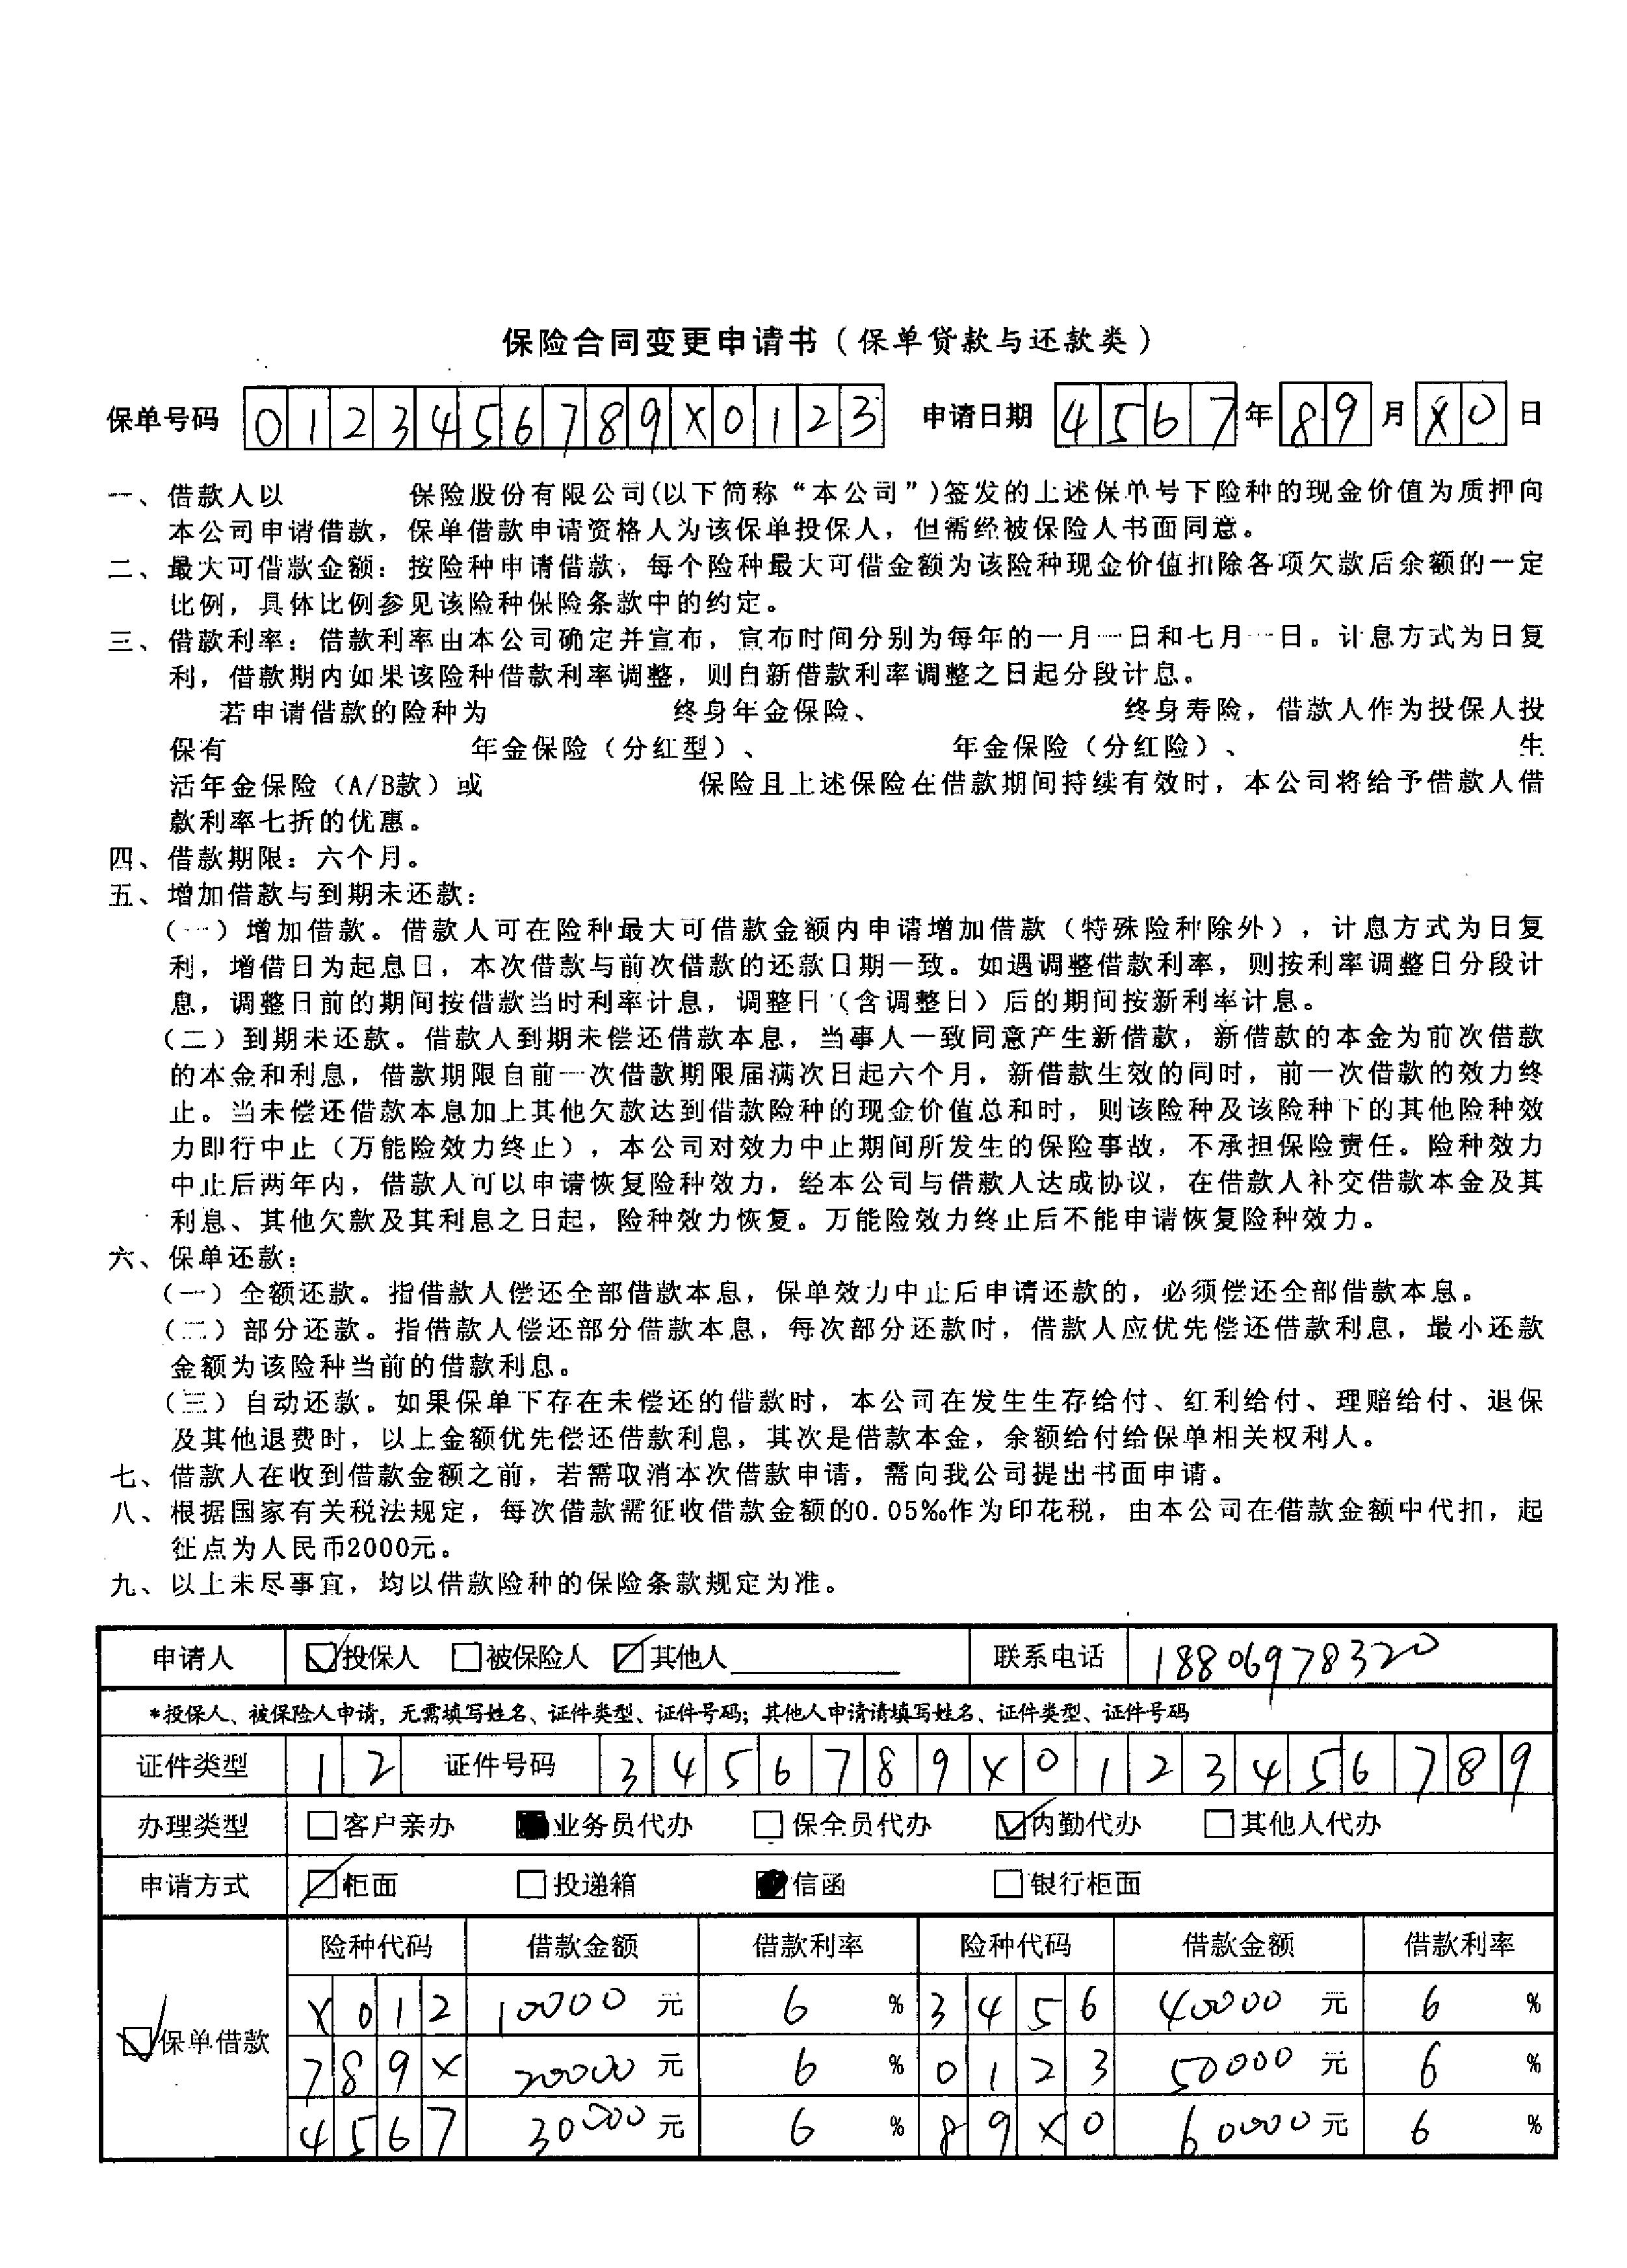 保险合同变更申请书（保单贷款与还款类）
保单号码 0123456789X0123 申请日期 4567年89月X0日
一、借款人以 保险股份有限公司(以下简称“本公司”)签发的上述保单号下险种的现金价值为质押向
本公司申请借款，保单借款申请资格人为该保单投保人，但需经被保险人书面同意。
二、最大可借款金额：按险种申请借款，每个险种最大可借金额为该险种现金价值扣除各项欠款后余额的一定
比例，具体比例参见该险种保险条款中的约定。
三、借款利率：借款利率由本公司确定并宣布，宣布时间分别为每年的一月一日和七月一日。计息方式为日复
利，借款期内如果该险种借款利率调整，则自新借款利率调整之日起分段计息。
若申请借款的险种为 终身年金保险、 终身寿险，借款人作为投保人投
保有 年金保险（分红型）、 年金保险（分红险）、 生
活年金保险（A/B款）或 保险且上述保险在借款期间持续有效时，本公司将给予借款人借
款利率七折的优惠。
四、借款期限：六个月。
五、增加借款与到期未还款：
（一）增加借款。借款人可在险种最大可借款金额内申请增加借款（特殊险种除外），计息方式为日复
利，增借日为起息日，本次借款与前次借款的还款日期一致。如遇调整借款利率，则按利率调整日分段计
息，调整日前的期间按借款当时利率计息，调整日（含调整日）后的期间按新利率计息。
（二）到期未还款。借款人到期未偿还借款本息，当事人一致同意产生新借款，新借款的本金为前次借款
的本金和利息，借款期限自前一次借款期限届满次日起六个月，新借款生效的同时，前一次借款的效力终
止。当未偿还借款本息加上其他欠款达到借款险种的现金价值总和时，则该险种及该险种下的其他险种效
力即行中止（万能险效力终止），本公司对效力中止期间所发生的保险事故，不承担保险责任。险种效力
中止后两年内，借款人可以申请恢复险种效力，经本公司与借款人达成协议，在借款人补交借款本金及其
利息、其他欠款及其利息之日起，险种效力恢复。万能险效力终止后不能申请恢复险种效力。
六、保单还款：
（一）全额还款。指借款人偿还全部借款本息，保单效力中止后申请还款的，必须偿还全部借款本息。
（二）部分还款。指借款人偿还部分借款本息，每次部分还款时，借款人应优先偿还借款利息，最小还款
金额为该险种当前的借款利息。
（三）自动还款。如果保单下存在未偿还的借款时，本公司在发生生存给付、红利给付、理赔给付、退保
及其他退费时，以上金额优先偿还借款利息，其次是借款本金，余额给付给保单相关权利人。
七、借款人在收到借款金额之前，若需取消本次借款申请，需向我公司提出书面申请。
八、根据国家有关税法规定，每次借款需征收借款金额的0.05‰作为印花税，由本公司在借款金额中代扣，起
征点为人民币2000元。
九、以上未尽事宜，均以借款险种的保险条款规定为准。
申请人 投保人 被保险人 其他人 联系电话 18806978320
*投保人、被保险人申请，无需填写姓名、证件类型、证件号码；其他人申请请填写姓名、证件类型、证件号码
证件类型 12 证件号码 3456789X0123456789
办理类型 客户亲办 业务员代办 保全员代办 内勤代办 其他人代办
申请方式 柜面 投递箱 信函 银行柜面
险种代码 借款金额 借款利率 险种代码 借款金额 借款利率
X012 10000 元 6 % 3456 40000 元 6 %
保单借款 789X 20000 元 6 % 0123 50000 元 6 %
4567 30000 元 6 % 89X0 60000 元 6 %